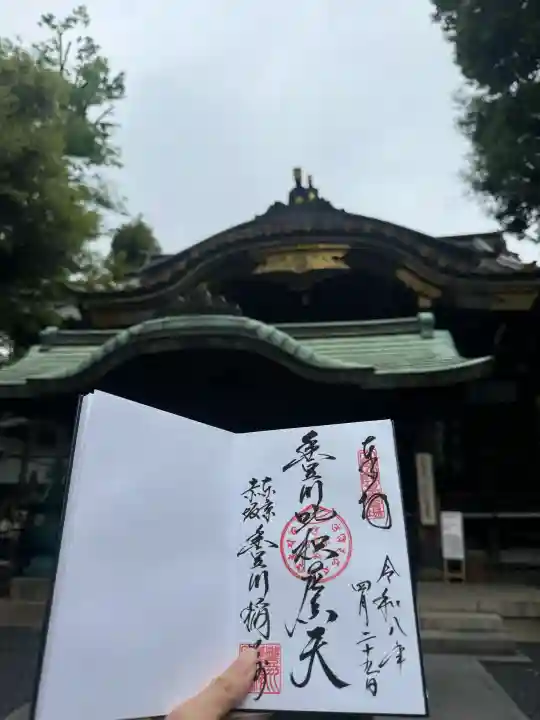 奉拝
令和八年
四月二十五日
豊川吒枳尼天
東京
赤坂
豊川稲荷